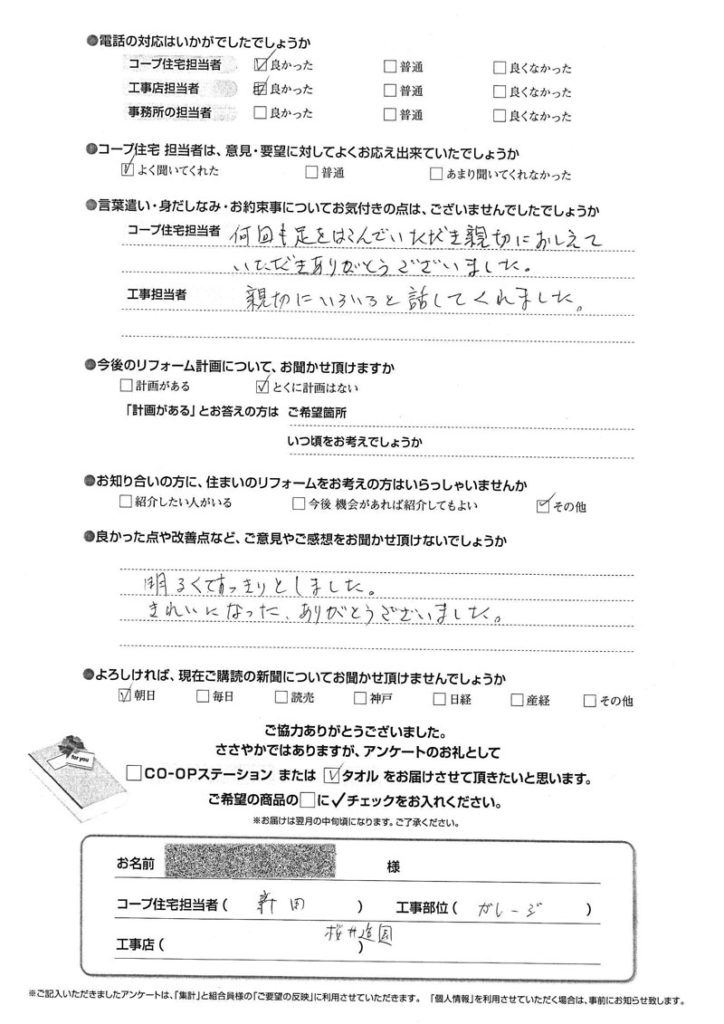 ●電話の対応はいかがでしたでしょうか
コープ住宅担当者 ☑良かった □普通 □良くなかった
工事店担当者 ☑良かった □普通 □良くなかった
事務所の担当者 □良かった □普通 □良くなかった
●コープ住宅 担当者は、意見・要望に対してよくお応え出来ていたでしょうか
☑よく聞いてくれた □普通 □あまり聞いてくれなかった
●言葉遣い・身だしなみ・お約束事についてお気付きの点は、ございませんでしたでしょうか
コープ住宅担当者 何回も足をはこんでいただき親切におしえて
いただきありがとうございました。
工事担当者 親切にいろいろと話してくれました。
●今後のリフォーム計画について、お聞かせ頂けますか
□計画がある ☑とくに計画はない
「計画がある」とお答えの方は ご希望箇所
いつ頃をお考えでしょうか
●お知り合いの方に、住まいのリフォームをお考えの方はいらっしゃいませんか
□紹介したい人がいる □今後 機会があれば紹介してもよい ☑その他
●良かった点や改善点など、ご意見やご感想をお聞かせ頂けないでしょうか
明るくてすっきりとしました。
きれいになった、ありがとうございました。
●よろしければ、現在ご購読の新聞についてお聞かせ頂けませんでしょうか
☑朝日 □毎日 □読売 □神戸 □日経 □産経 □その他
ご協力ありがとうございました。
ささやかではありますが、アンケートのお礼として
for you
□CO-OPステーション または ☑タオル をお届けさせて頂きたいと思います。
ご希望の商品の□に✓チェックをお入れください。
※お届けは翌月の中旬頃になります。ご了承ください。
お名前 様
コープ住宅担当者( 新田 ) 工事部位( ガレージ )
工事店( 桜井造園 )
※ご記入いただきましたアンケートは、「集計」と組合員様の「ご要望の反映」に利用させていただきます。 「個人情報」を利用させていただく場合は、事前にお知らせ致します。